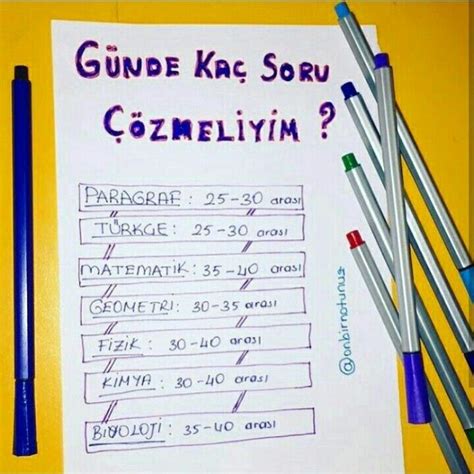 GÜNDE KAÇ SORU
ÇÖZMELİYİM ?
PARAGRAF : 25-30 arası
TÜRKÇE : 25-30 arası
MATEMATİK : 35-40 arası
GEOMETRİ : 30-35 arası
FİZİK : 30-40 arası
KİMYA : 30-40 arası
BİYOLOJİ : 35-40 arası
@onbirnotunuz